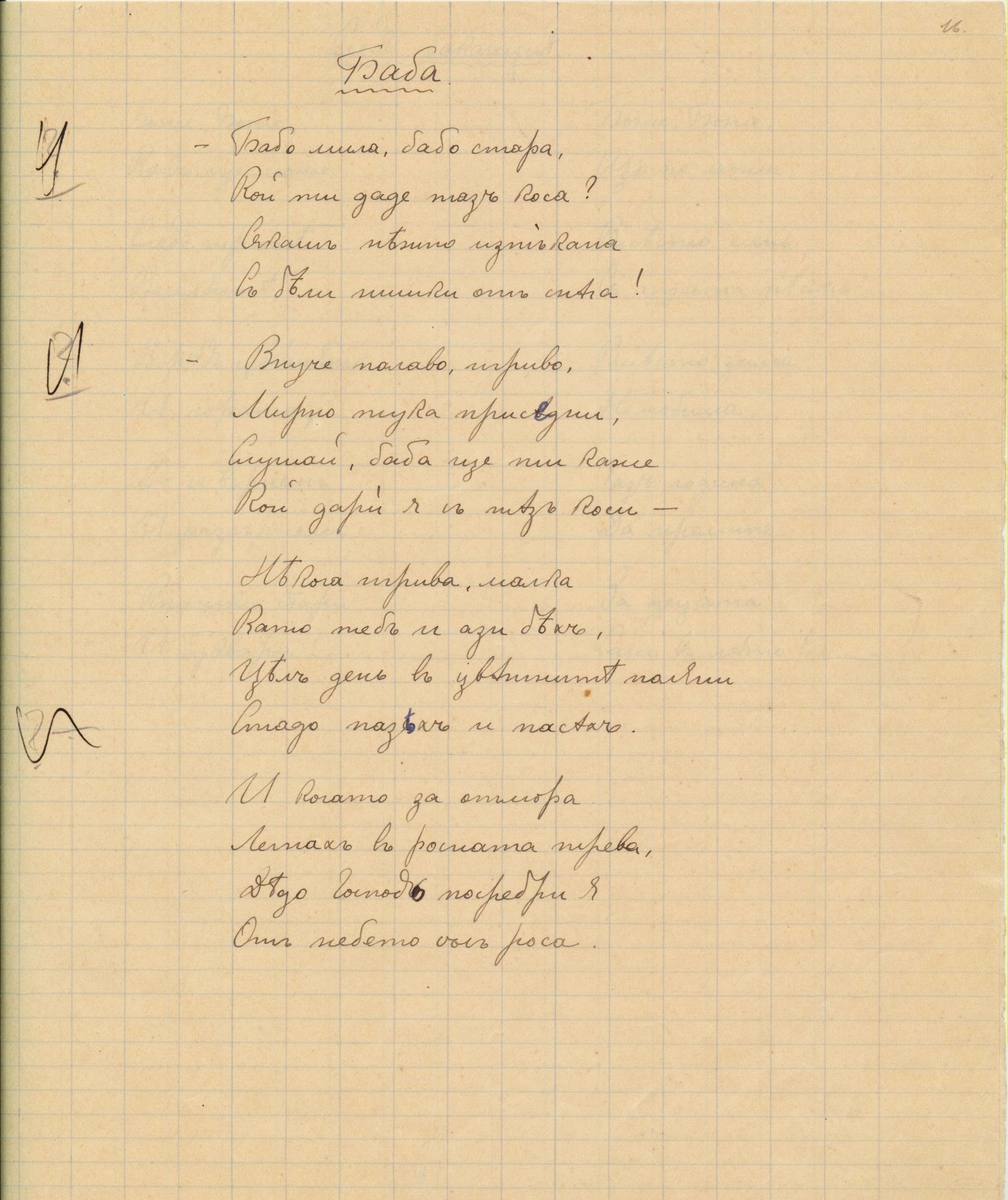 16.
Баба
– Бабо мила, бабо стара,
Кой ти даде тазъ коса?
Сѫкашъ нѣжно изтъкана
Съ бѣли нишки отъ снѣга!
– Внуче палаво, игриво,
Мирно тука приседни,
Слушай, баба ще ти каже
Кой дари́ я съ тѣзъ коси —
Нѣкога игрива, малка
Като тебъ и ази бѣхъ,
Цѣлъ день въ цвѣтнитѣ поляни
Стадо пазѣхъ и пасѣхъ.
И когато за отмора
Легнахъ въ росната трева,
Дѣдо Господь посребри я
Отъ небето съсъ роса.